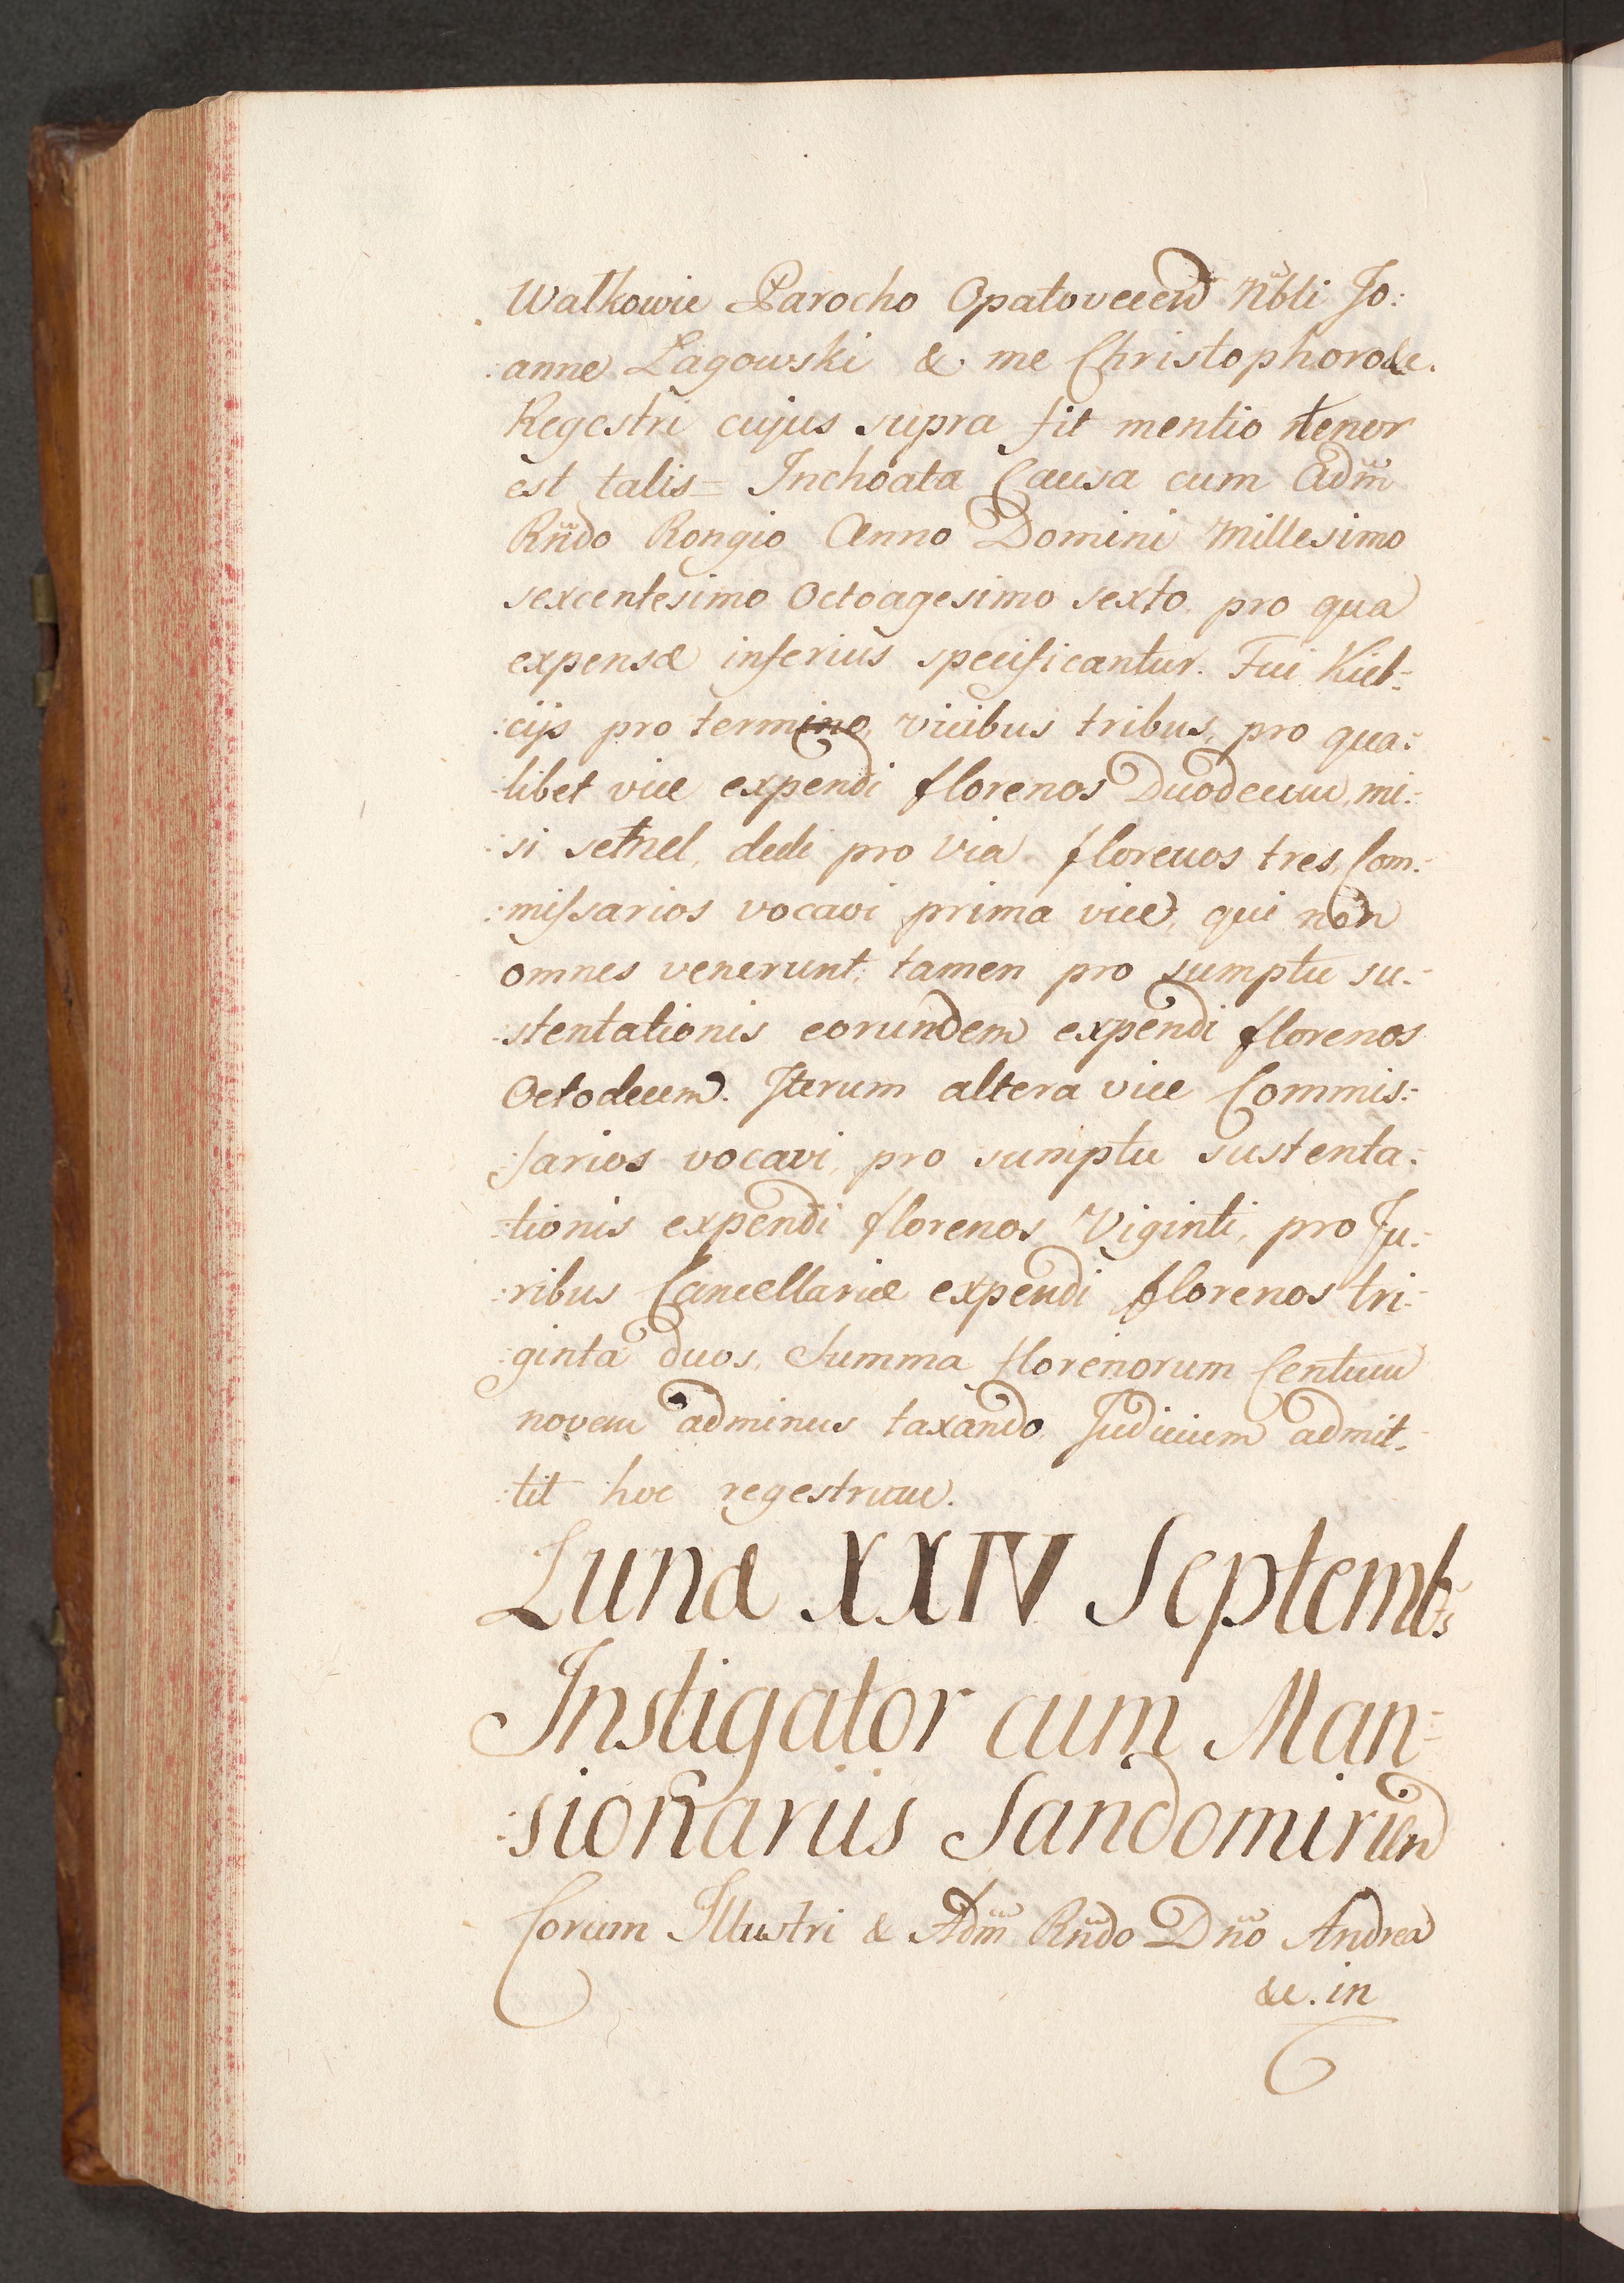 Walkowie Parocho Opatovecen Nbli Jo:
:anne Lagowski & me Christophoro &c.
Regestri cujus supra fit mentio tenor
est talis = Inchoata Causa cum Adm
Rndo Rongio Anno Domini Millesimo
sexcentesimo Octoagesimo sexto, pro qua
expensæ inferius specificantur. Fui Kiel:
:cijs pro termino, vicibus tribus, pro qua:
:libet vice expendi florenos Duodecim, mi:
:si semel, dedi pro via florenos tres, Com:
:missarios vocavi prima vice, qui non
omnes venerunt, tamen pro sumptu su:
:stentationis eorundem expendi florenos
Octodecem. Iterum altera vice Commis:
:sarios vocavi, pro sumptu sustenta:
:tionis expendi florenos Viginti, pro Ju:
:ribus Cancellariæ expendi florenos tri:
:ginta duos. Summa florenorum Centum
novem adminus taxando. Judicium admit:
:tit hoc regestrum.
Lunæ XXIV Septembs
Instigator cum Man=
:sionariis Sandomirien
Coram Illustri & Adm Rndo Dno Andrea
&c. in